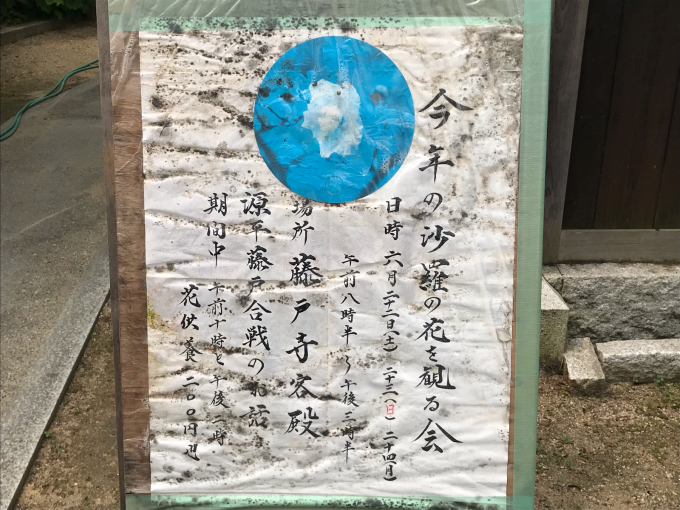 今年の沙羅の花を観る会
日時 六月二十二日(土) 二十三(日) 二十四(月)
午前八時半〜午後三時半
場所 藤戸寺客殿
源平藤戸合戦のお話
期間中 午前十時と午後一時
花供養 二〇〇円也